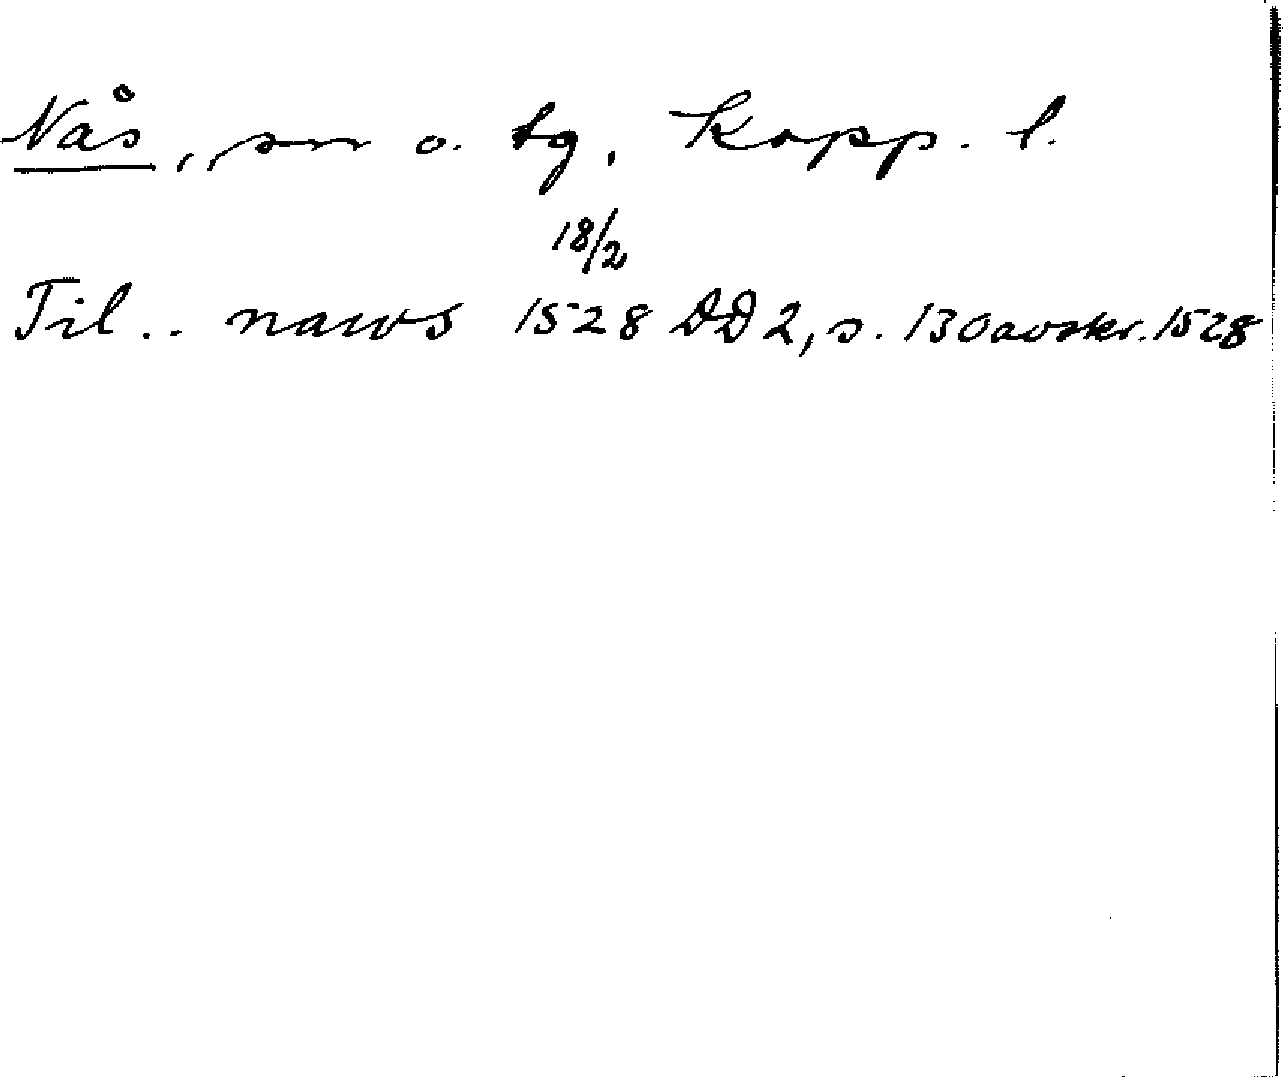 Nås, sn o. tg, Kopp. l.
18/2
Til.. naws 1528 DD 2, s. 130 avskr. 1528